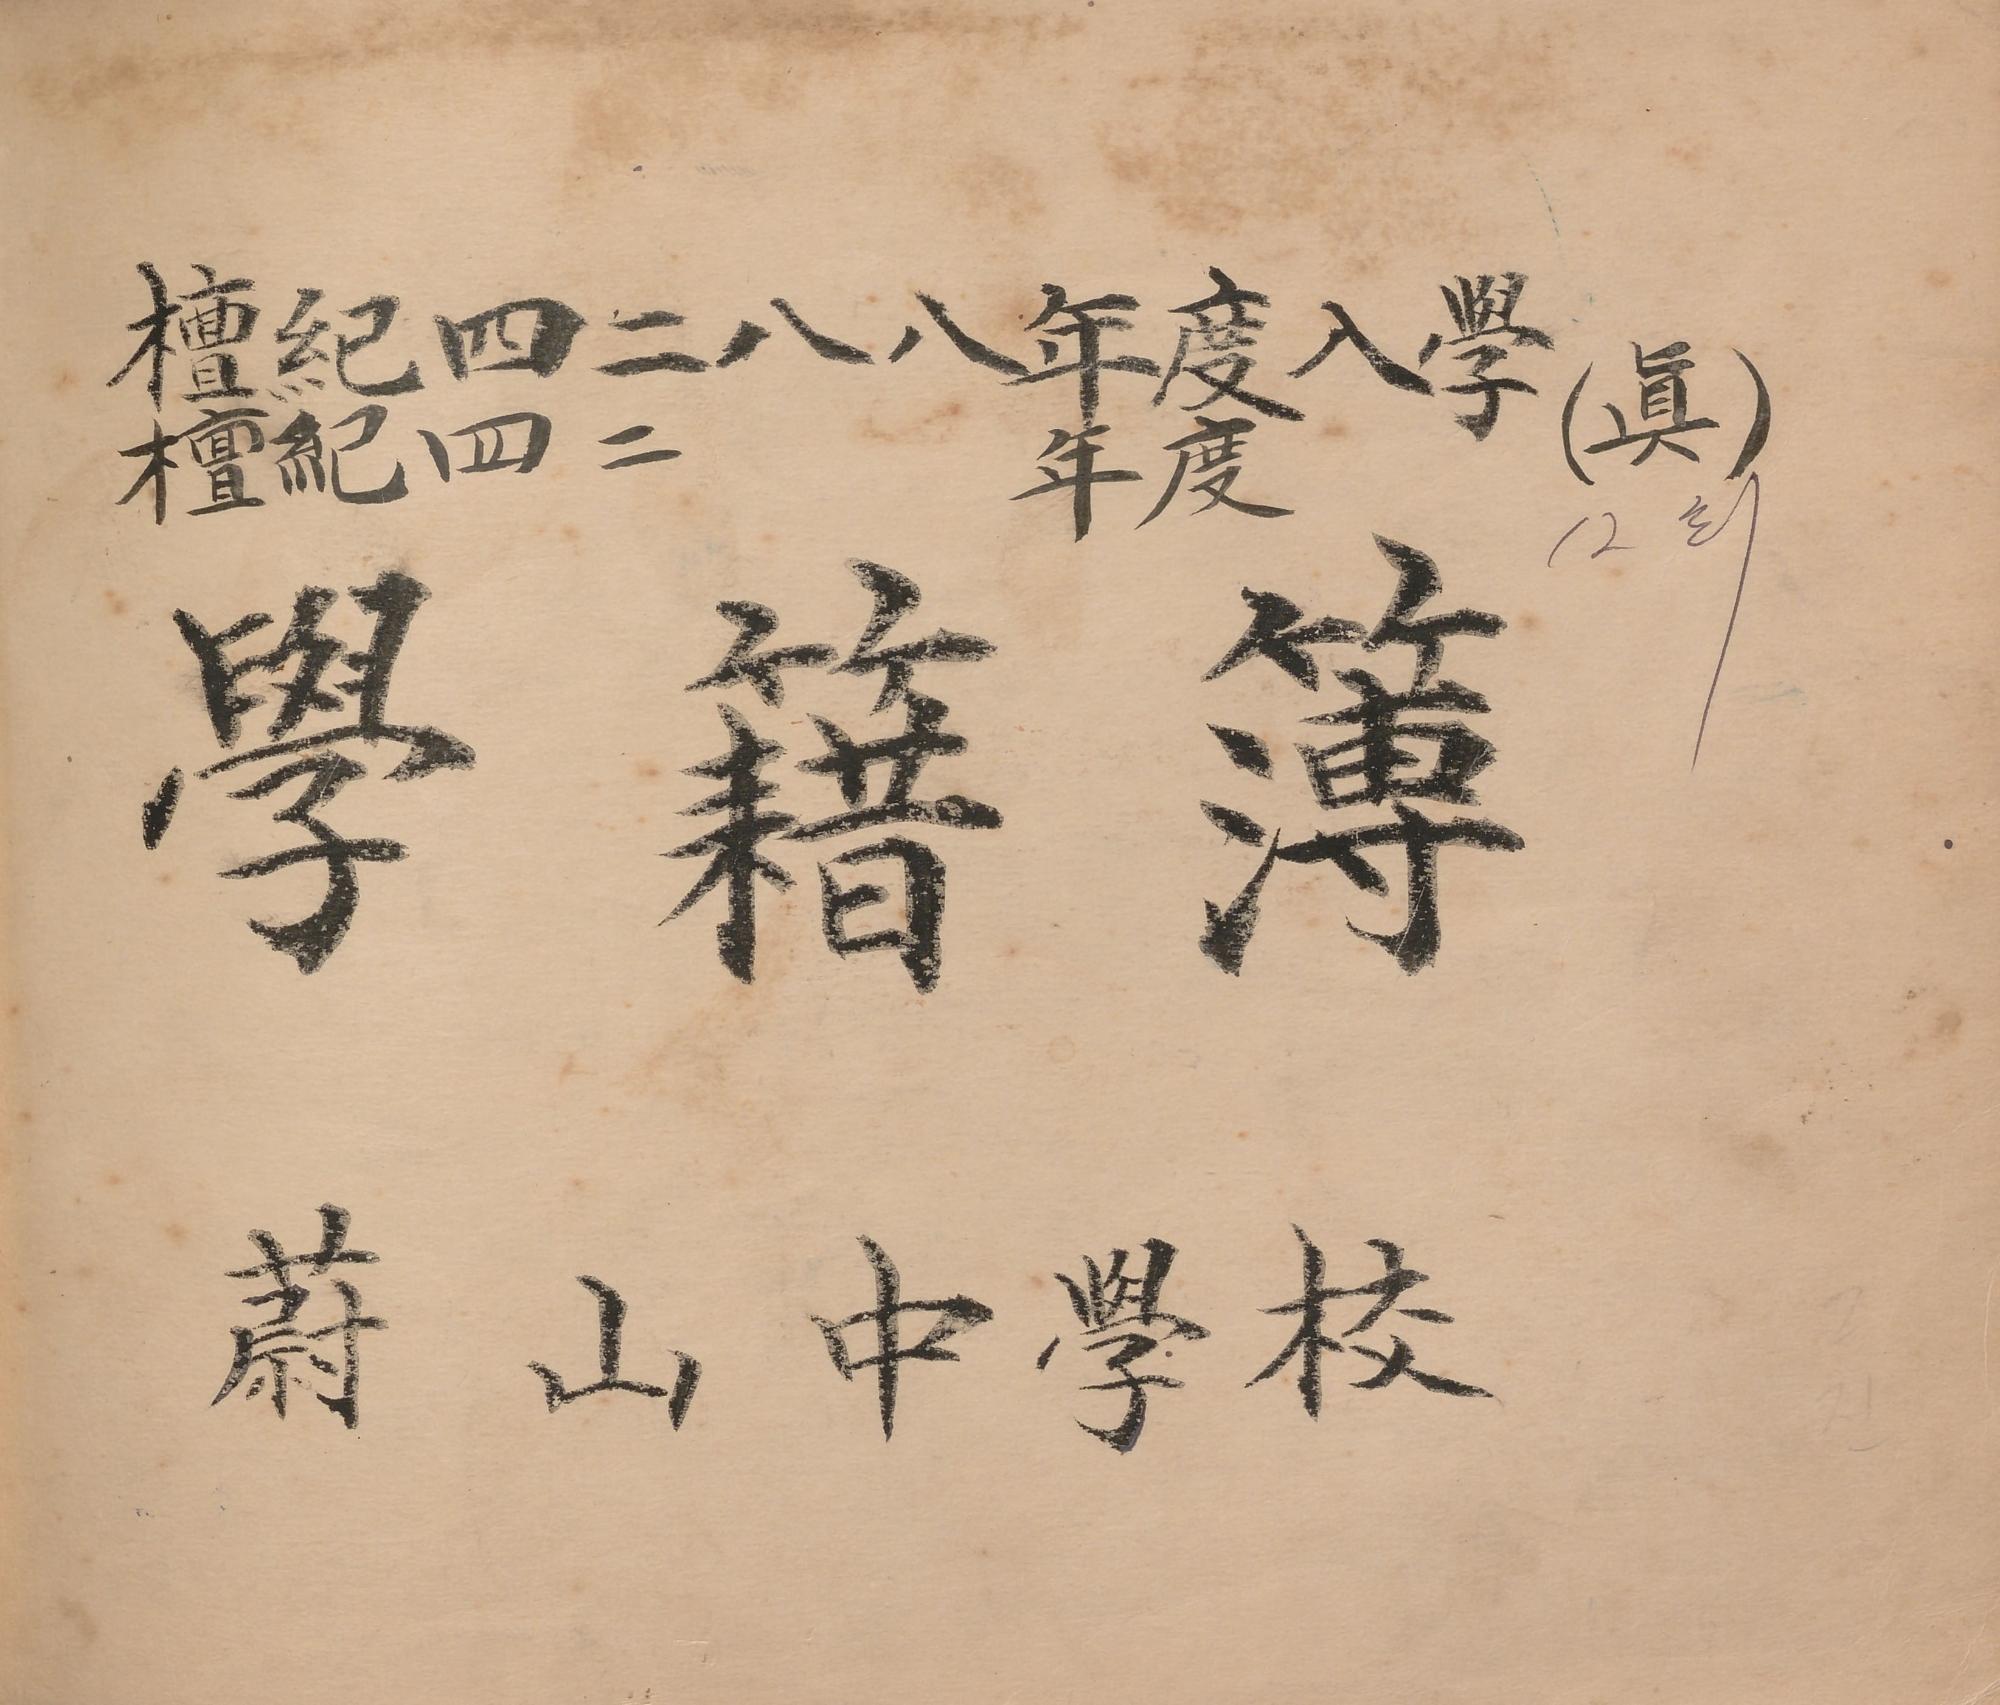 檀紀四二八八年度入學
(眞)
檀紀四二 年度
12회
學籍簿
蔚山中學校